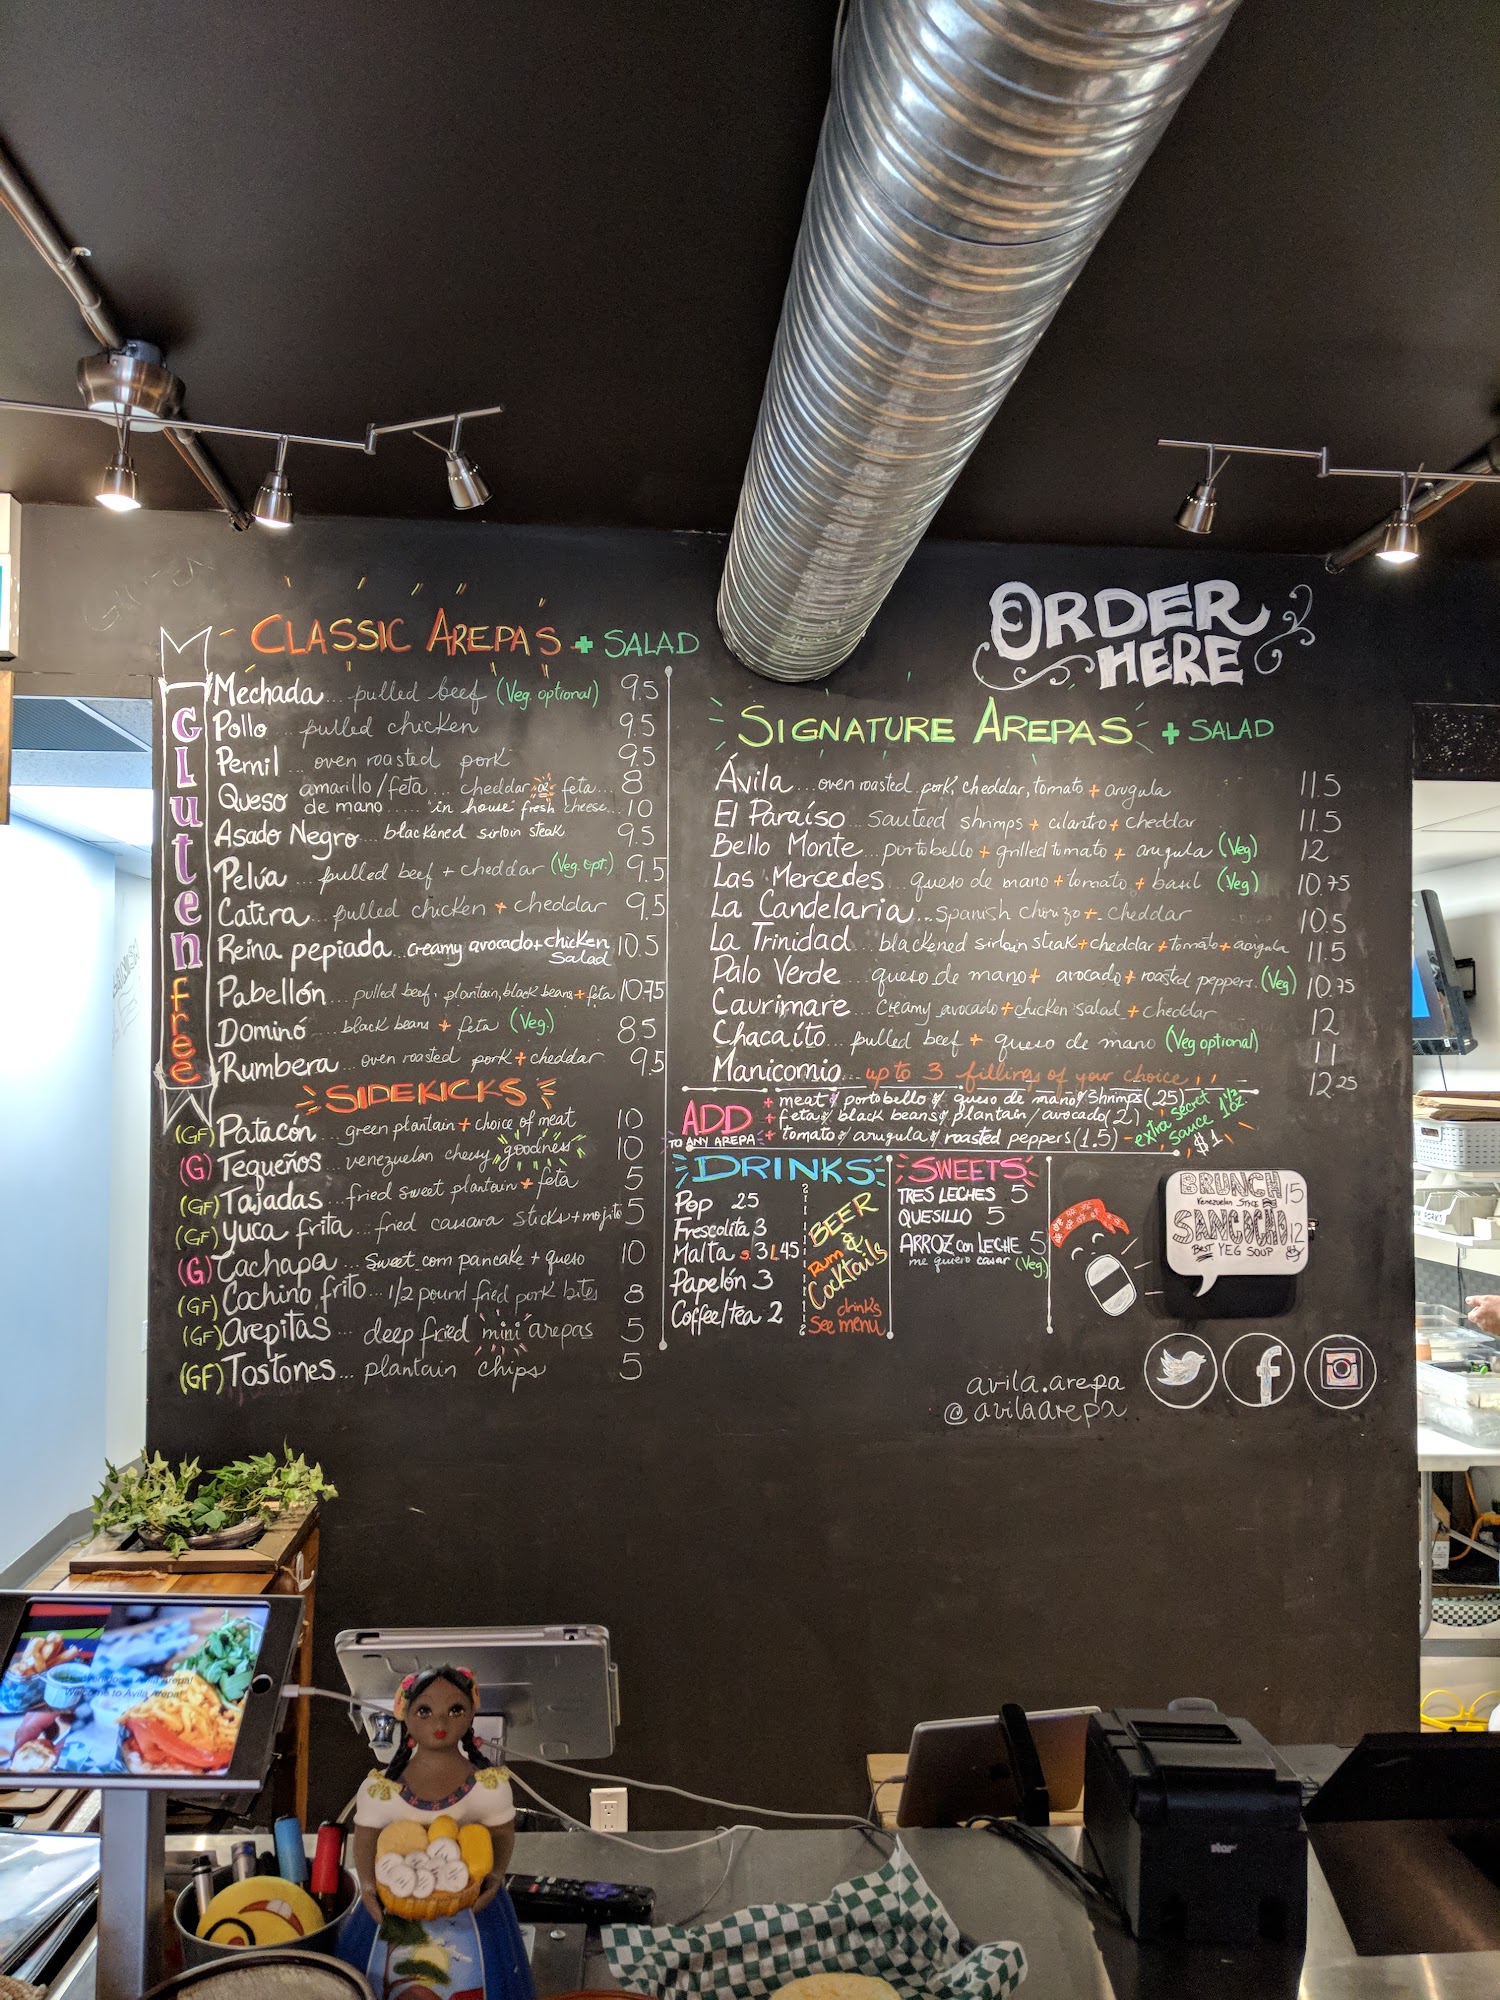 CLASSIC AREPAS + SALAD
Gluten Free
Mechada... pulled beef (Veg. optional) 9.5
Pollo ... pulled chicken 9.5
Pernil ... oven roasted pork 9.5
Queso amarillo/feta... cheddar or feta... 8
de mano ...... "in house" fresh cheese... 10
Asado Negro... blackened sirloin steak 9.5
Pelúa ... pulled beef + cheddar (Veg. opt.) 9.5
Catira... pulled chicken + cheddar 9.5
Reina pepiada... creamy avocado + chicken salad 10.5
Pabellón ... pulled beef, plantain, black beans + feta 10.75
Dominó .... black beans + feta (Veg.) 8.5
Rumbera ... oven roasted pork + cheddar 9.5
SIDEKICKS
(GF) Patacón ... green plantain + choice of meat 10
(G) Tequeños ... venezuelan cheesy goodness 10
(GF) Tajadas ... fried sweet plantain + feta 5
(GF) Yuca frita ... fried cassava sticks + mojito 5
(G) Cachapa ... sweet corn pancake + queso 10
(GF) Cochino frito ... 1/2 pound fried pork bites 8
(GF) Arepitas ... deep fried mini arepas 5
(GF) Tostones... plantain chips 5
ORDER
HERE
SIGNATURE AREPAS + SALAD
Ávila ... oven roasted pork, cheddar, tomato + arugula 11.5
El Paraíso ... sauteed shrimps + cilantro + cheddar 11.5
Bello Monte ... portobello + grilled tomato + arugula (Veg) 12
Las Mercedes ... queso de mano + tomato + basil (Veg) 10.75
La Candelaria ... Spanish chorizo + cheddar 10.5
La Trinidad ... blackened sirloin steak + cheddar + tomato + arugula 11.5
Palo Verde ... queso de mano + avocado + roasted peppers (Veg) 10.75
Caurimare ... creamy avocado + chicken salad + cheddar 12
Chacaíto ... pulled beef + queso de mano (Veg optional) 11
Manicomio ... up to 3 fillings of your choice !! 12.25
ADD
TO ANY AREPA
+ meat / portobello / queso de mano / shrimps (2.5)
+ feta / black beans / plantain / avocado (2)
+ tomato / arugula / roasted peppers (1.5)
extra secret
sauce
$1
DRINKS
Pop 2.5
Frescolita 3
Malta s. 3 L. 4.5
Papelón 3
Coffee/tea 2
BEER
&
Rum
Cocktails
drinks
See menu
SWEETS
TRES LECHES 5
QUESILLO 5
ARROZ con LECHE 5
me quiero casar (Veg.)
BRUNCH 15
Venezuelan Style
SANCOCHO 12
BEST YEG SOUP
avila.arepa
@avilaarepa
f
Welcome to Avila Arepa!
star